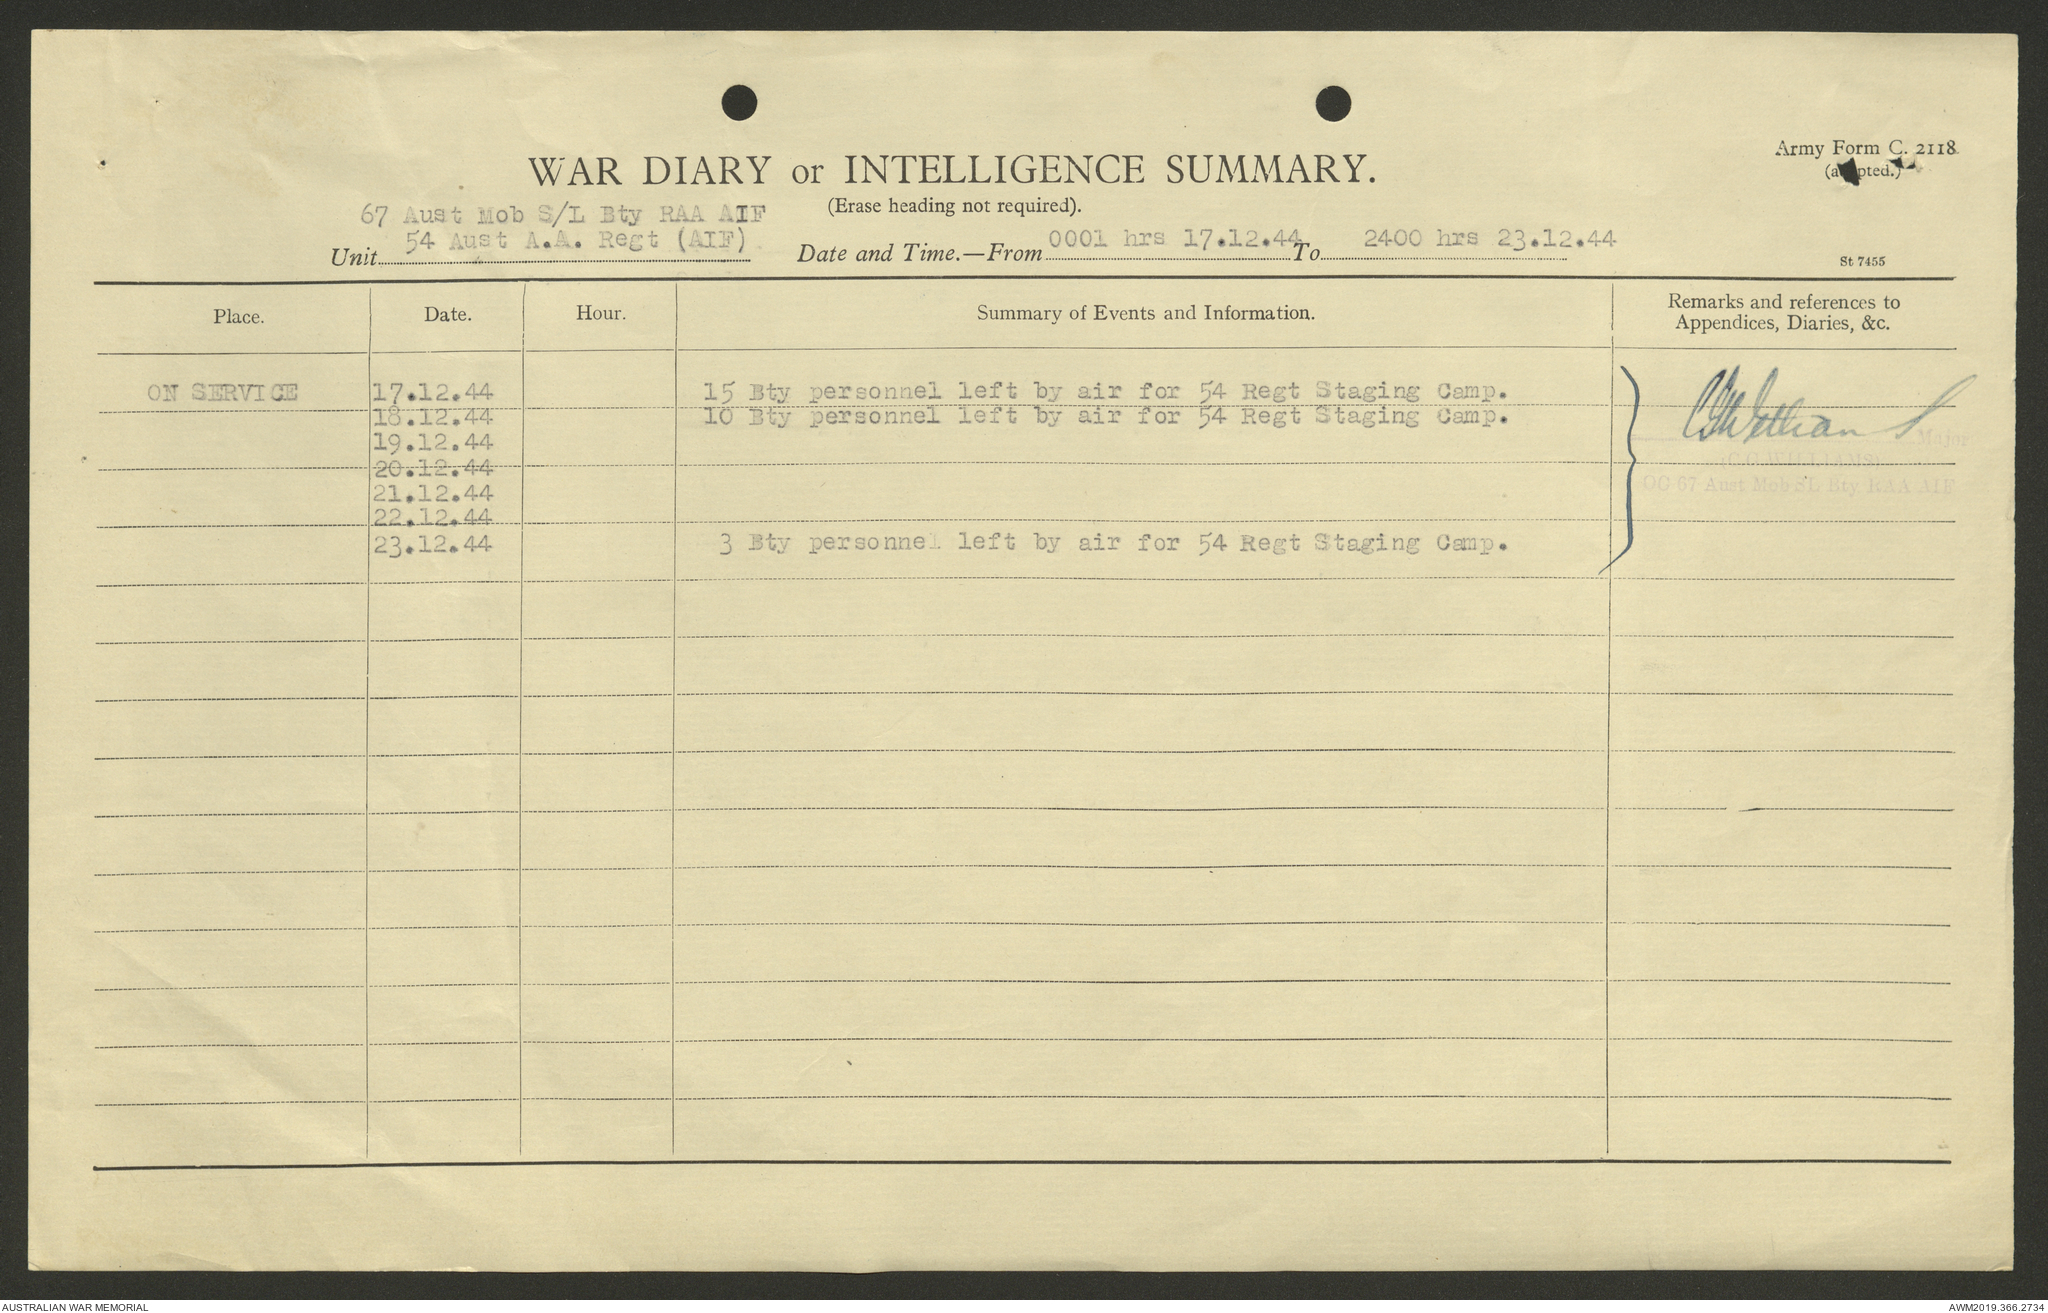 Army Form C. 2118
(adapted.)
WAR DIARY or INTELLIGENCE SUMMARY.
(Erase heading not required).
67 Aust Mob S/L Bty RAA AIF
54 Aust A.A. Regt (AIF)
Unit Date and Time.—From 0001 hrs 17.12.44 To 2400 hrs 23.12.44
St 7455
Place. Date. Hour. Summary of Events and Information. Remarks and references to
Appendices, Diaries, &c.
ON SERVICE 17.12.44 15 Bty personnel left by air for 54 Regt Staging Camp.
18.12.44 10 Bty personnel left by air for 54 Regt Staging Camp.
19.12.44
20.12.44
21.12.44
22.12.44
23.12.44 3 Bty personnel left by air for 54 Regt Staging Camp.
CGWilliams Major
(C.G.WILLIAMS)
OC 67 Aust Mob SL Bty RAA AIF
AUSTRALIAN WAR MEMORIAL AWM2019.366.2734